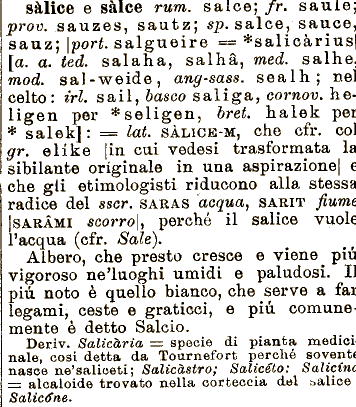 sàlice e sàlce rum. salce; fr. saule;
prov. sauzes, sautz; sp. salce, sauce,
sauz; |port. salgueire = *salicàrius|
[a. a. ted. salaha, salhâ, med. salhe,
mod. sal-weide, ang-sass. sealh; nel
celto: irl. sail, basco saliga, cornov. he-
ligen per *seligen, bret. halek per
* salek]: = lat. SÀLICE-M, che cfr. col
gr. elíke [in cui vedesi trasformata la
sibilante originale in una aspirazione| e
che gli etimologisti riducono alla stessa
radice del sscr. SARAS acqua, SARIT fiume
|SARÂMI scorro|, perché il salice vuole
l'acqua (cfr. Sale).
Albero, che presto cresce e viene piú
vigoroso ne'luoghi umidi e paludosi. Il
piú noto è quello bianco, che serve a far
legami, ceste e graticci, e piú comune-
mente è detto Salcio.
Deriv. Salicària = specie di pianta medici-
nale, cosi detta da Tournefort perché sovente
nasce ne'saliceti; Salicàstro; Salicéto: Salicína
= alcaloide trovato nella corteccia del salice
Salicóne.